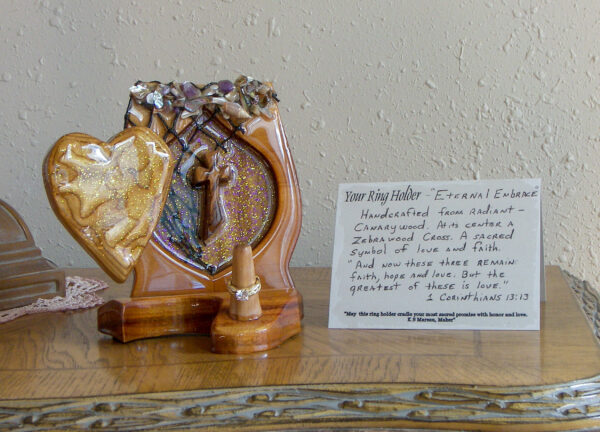 Your Ring Holder - "Eternal Embrace"
Handcrafted from radiant -
Canarywood. At its center a
Zebrawood Cross. A sacred
symbol of love and faith.
"And now these three remain:
faith, hope and love. But the
greatest of these is love."
1 Corinthians 13:13
"May this ring holder cradle your most sacred promise with honor and love.
E S Marsau, Maker"